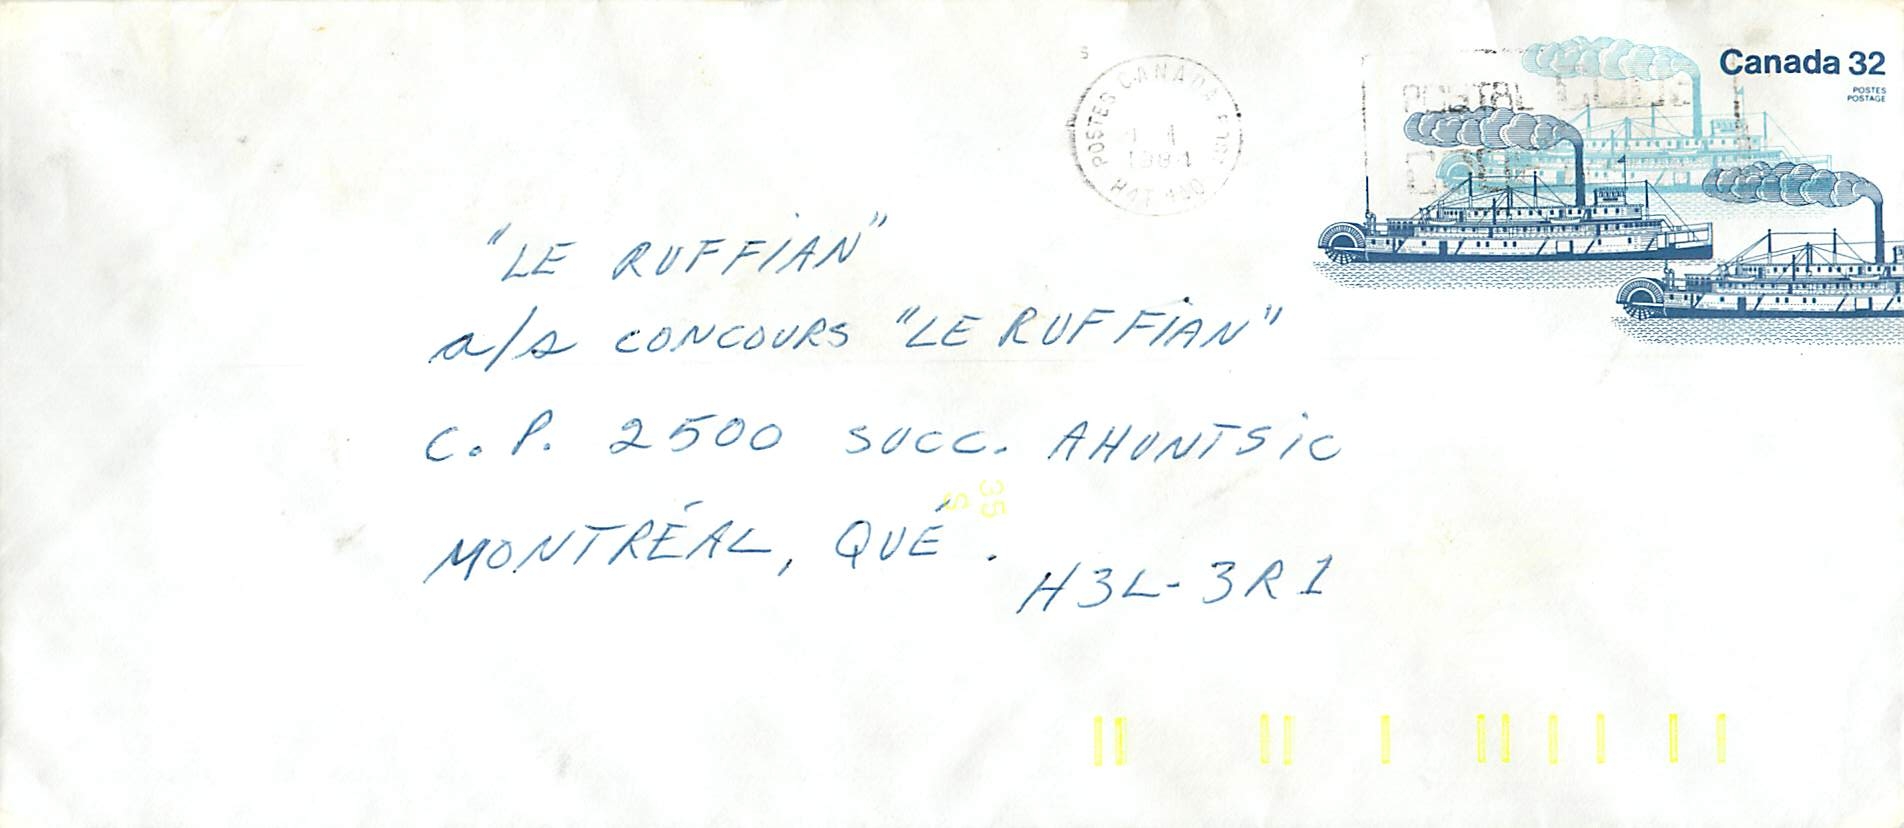 Canada 32
POSTES
POSTAGE
S
POSTES CANADA
1984
POSTAL CODE
"LE RUFFIAN"
a/s CONCOURS "LE RUFFIAN"
C.P. 2500 SUCC. AHUNTSIC
MONTRÉAL, QUÉ.
H3L-3R1
35
S